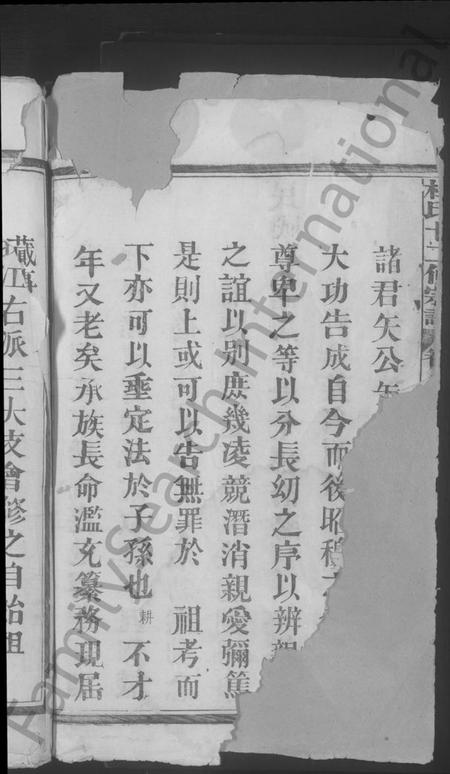 杜氏十二修宗譜
諸君矢公矢
大功告成自今而後昭穆
尊卑之等以分長幼之序以辨親
之誼以別庶幾凌競潛消親愛彌篤
是則上或可以告無罪於 祖考而
下亦可以垂定法於子孫也 耕 不才
年又老矣承族長命濫充纂務現屆
蕆事
右派三大枝會修之自始祖
Familysearch International